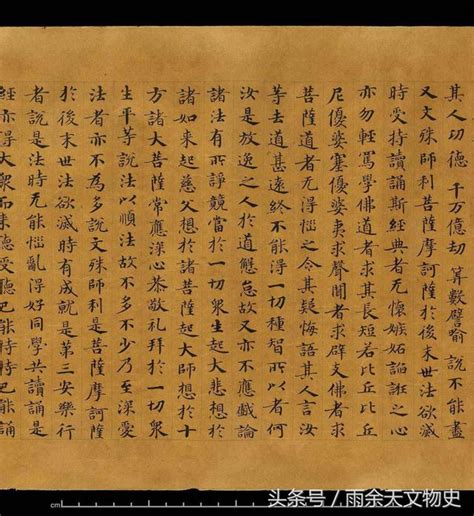 其人功德 千万億劫 算數譬喻 說不能盡
又文殊師利菩薩摩訶薩於後末世法欲滅
時受持讀誦斯經典者无懷嫉妬諂誑之心
亦勿輕罵學佛道者求其長短若比丘比丘
尼優婆塞優婆夷求聲聞者求辟支佛者求
菩薩道者无得惱之令其疑悔語其人言汝
等去道甚遠終不能得一切種智所以者何
汝是放逸之人於道懈怠故又亦不應戲論
諸法有所諍競當於一切眾生起大悲想於
諸如來起慈父想於諸菩薩起大師想於十
方諸大菩薩常應深心恭敬礼拜於一切眾
生平等說法以順法故不多不少乃至深愛
法者亦不為多說文殊師利是菩薩摩訶薩
於後末世法欲滅時有成就是第三安樂行
者說是法時无能惱亂得好同學共讀誦是
經亦得大眾而來聽受聽已能持持已能誦
cm
头条号／雨余天文物史